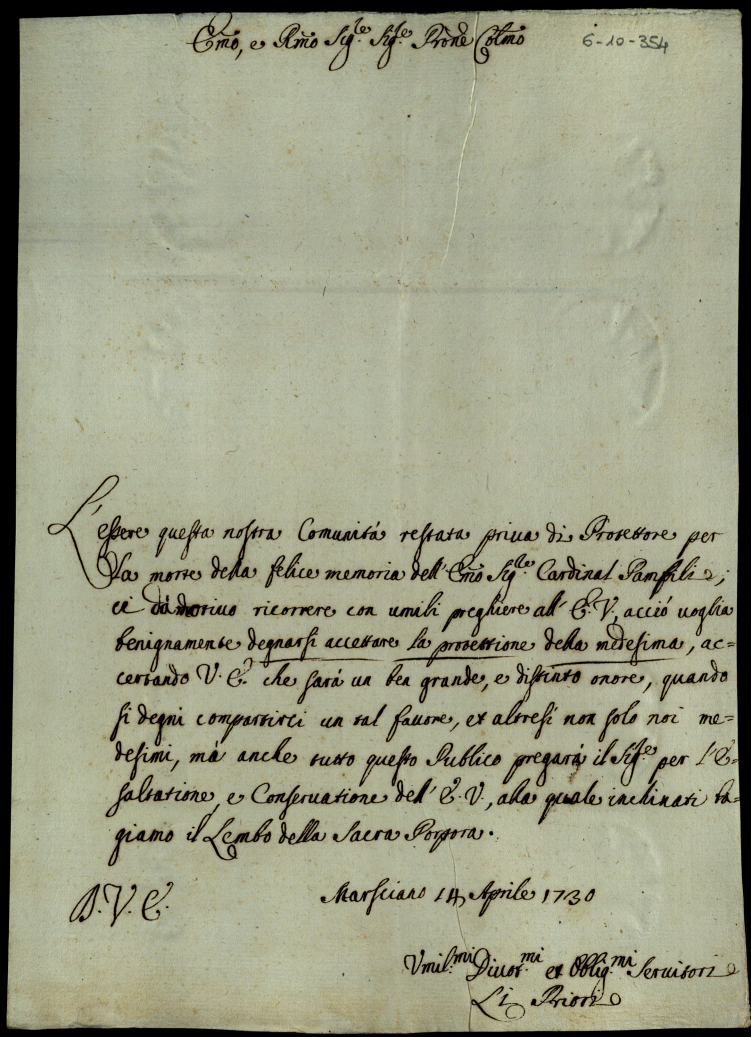 Emo, e Rmo Sig.re Sig.re Prone Colmo
6-10-354
L'essere questa nostra Comunità restata priua di Protettore per
la morte della felice memoria dell' Emo Sig.re Cardinal Pamfili;
ci dà motiuo ricorrere con umili preghiere all' E.V, acciò uoglia
benignamente degnarsi accettare la protettione della medesima, ac=
certando V.E. che sarà un ben grande, e distinto onore, quando
si degni compartirci un tal fauore, et altresi non solo noi me=
desimi, mà anche tutto questo Publico pregarà il Sig.re per l'E=
saltatione, e Conseruatione dell' E.V., alla quale inchinati ba=
giamo il Lembo della Sacra Porpora.
D.V.E.
Marsciano 14 Aprile 1730
Vmil.mi Diuot.mi et Oblig.mi Seruitori
Li Priori